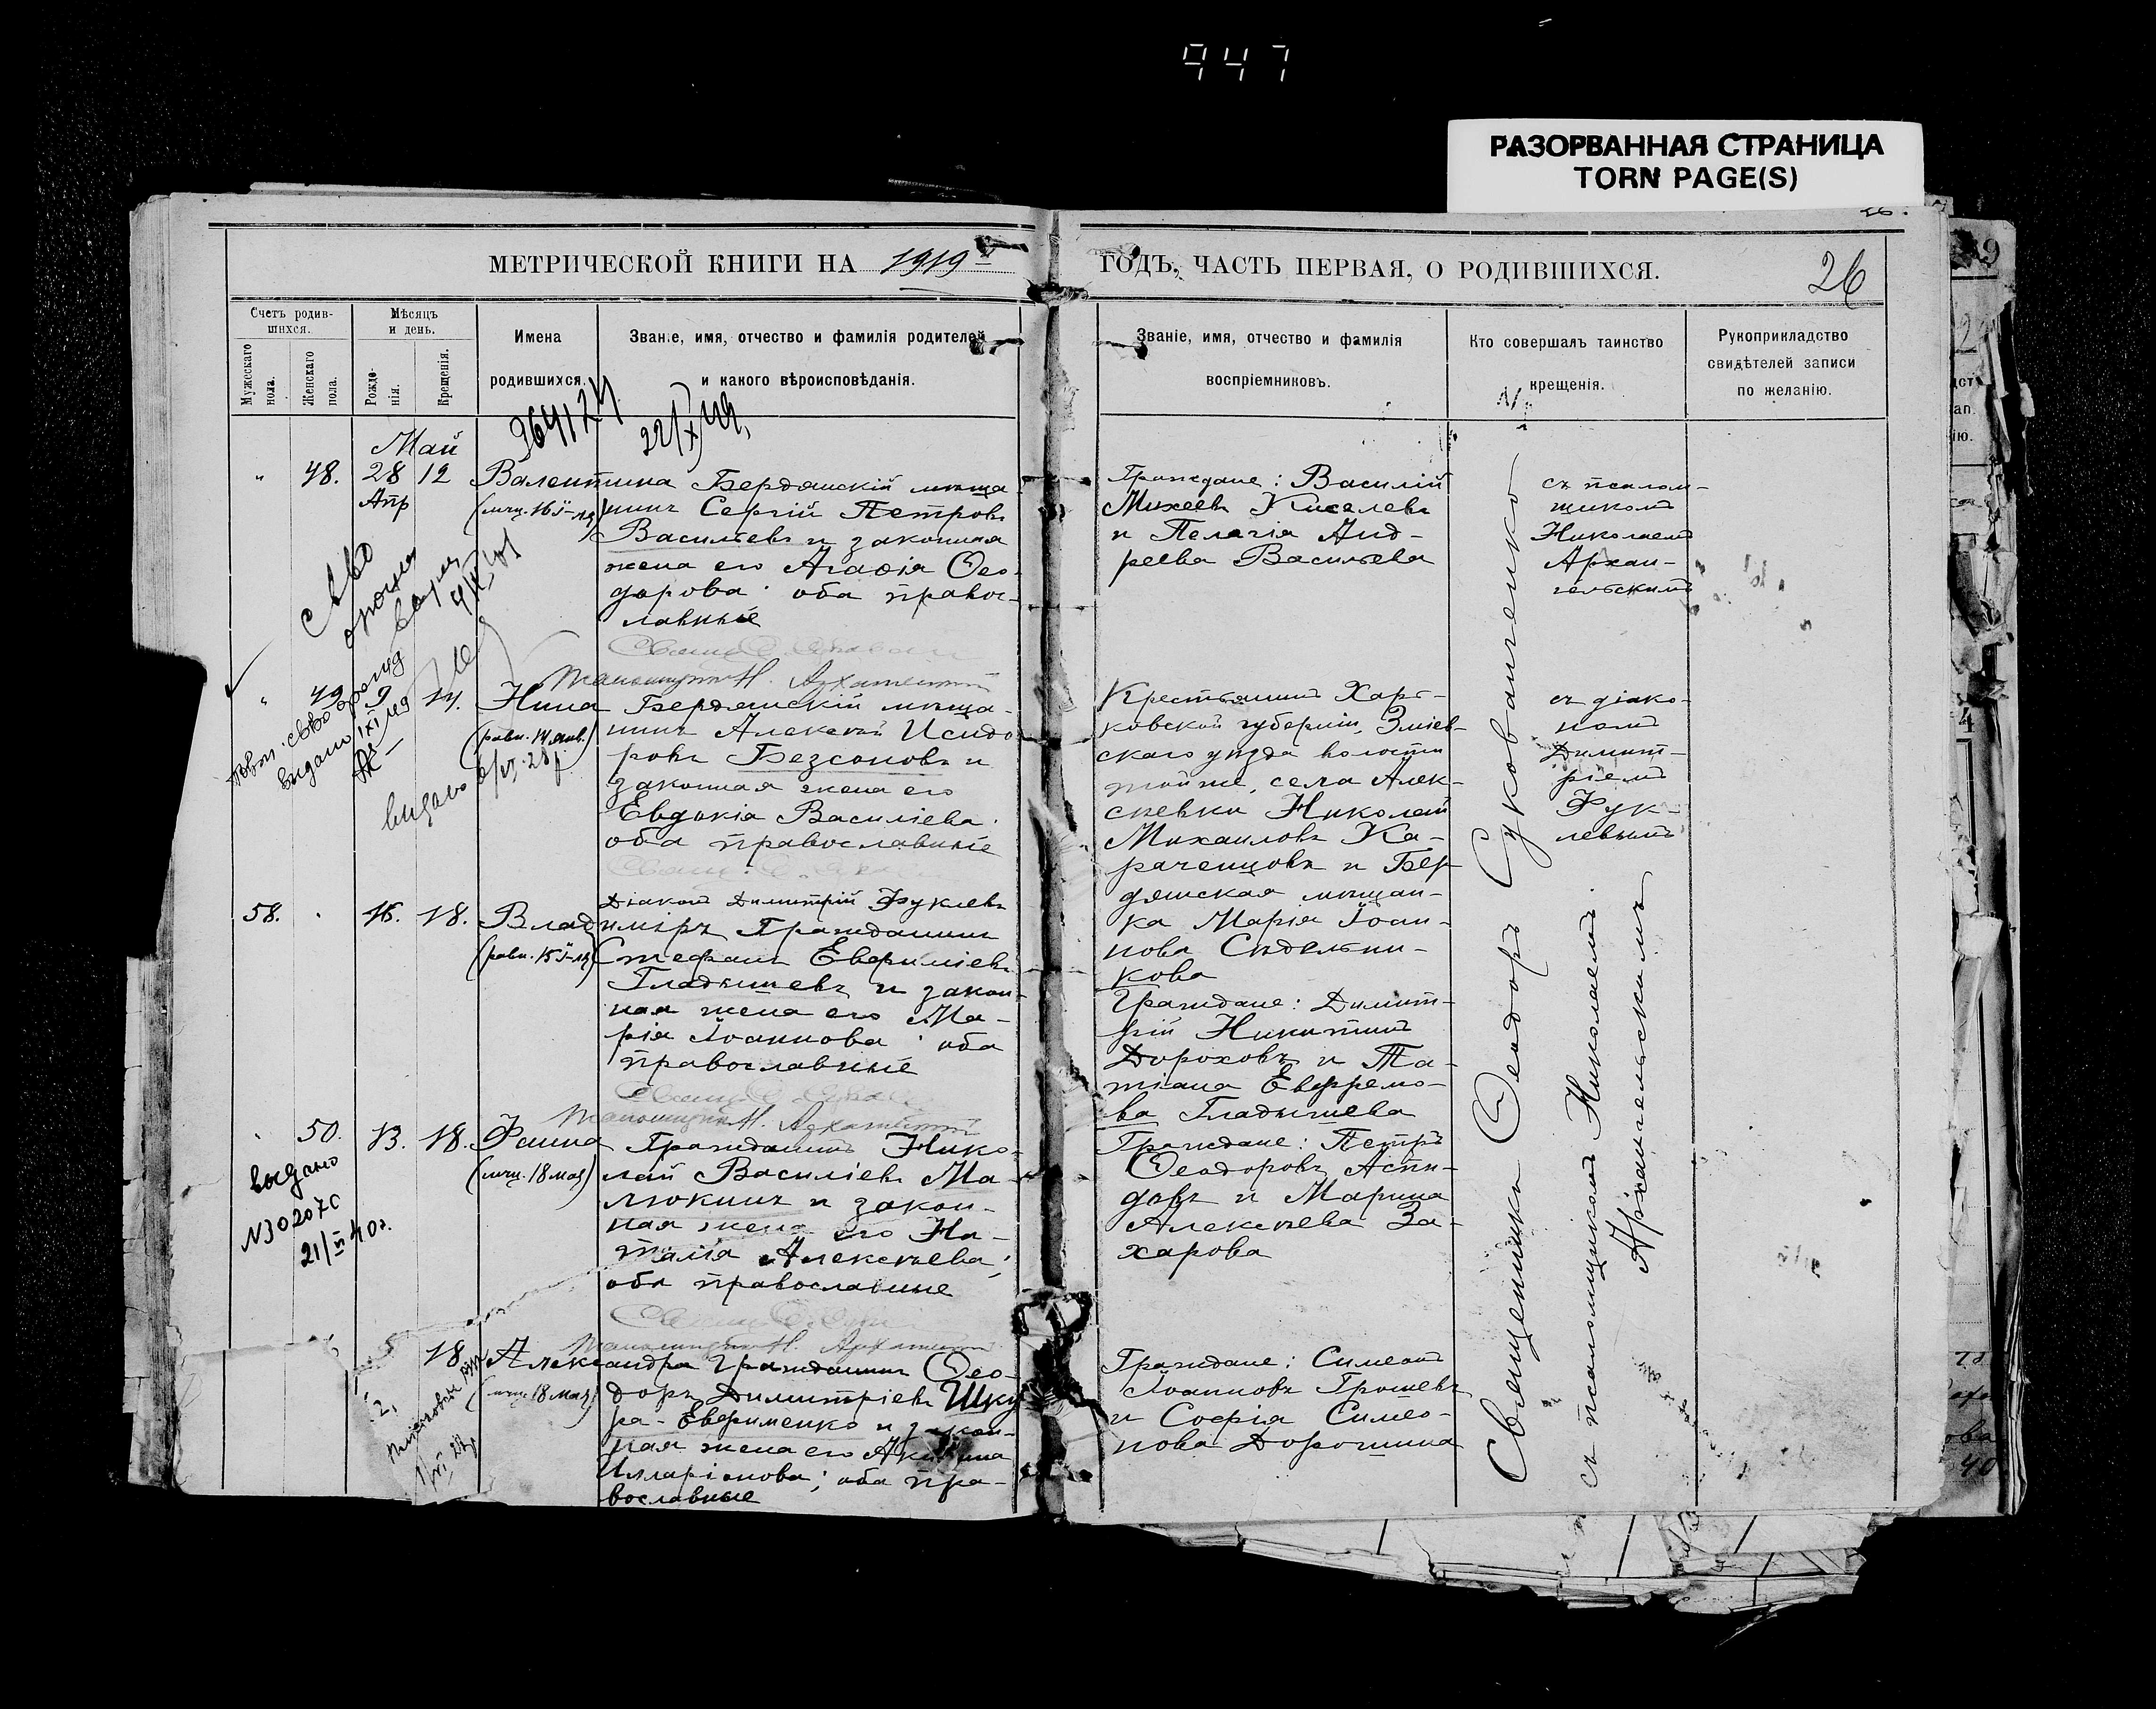 947
РАЗОРВАННАЯ СТРАНИЦА
TORN PAGE(S)
МЕТРИЧЕСКОЙ КНИГИ НА 1919
ГОДЪ, ЧАСТЬ ПЕРВАЯ, О РОДИВШИХСЯ.
26
Счетъ родив-
шихся.
Мѣсяцъ
и день.
Мужескаго
пола.
Женскаго
пола.
Рожде-
нія.
Крещенія.
Имена
родившихся.
Званіе, имя, отчество и фамилія родителей
и какого вѣроисповѣданія.
Званіе, имя, отчество и фамилія
воспріемниковъ.
Кто совершалъ таинство
крещенія.
Рукоприкладство
свидѣтелей записи
по желанію.
Май
48. 28 12 Валентина Бердянскій мѣща-
Апр
нинъ Сергій Петровъ
Васильевъ и законная
жена его Агаѳія Ѳео-
дорова; оба правос-
лавные
Граждане: Василій
Михеевъ Киселевъ
и Пелагія Анд-
реева Васильева
съ псалом-
щикомъ
Николаемъ
Архан-
гельскимъ
49. 9 14. Нина Бердянскій мѣща-
нинъ Алексѣй Исидо-
ровъ Безсоновъ и
законная жена его
Евдокія Василіева;
оба православные
Діаконъ Димитрій Фуклевъ
Крестьянинъ Харь-
ковской губерніи, Зміев-
скаго уѣзда волости
тойже, села Алек-
сѣевки Николай
Михаиловъ Ка-
раченцовъ и Бер-
дянская мѣщан-
ка Марія Іоан-
нова Сѣдельни-
кова
съ діако-
номъ
Димит-
ріемъ
Фук-
левымъ
58. 16. 18. Владиміръ Гражданинъ
Стефанъ Евфиміевъ
Гладышевъ и закон-
ная жена его Ма-
рія Іоаннова; оба
православные
Граждане: Димит-
рій Никитинъ
Дороховъ и Та-
тіана Ефремо-
ва Гладышева
50. 13. 18. Фаина Гражданинъ Нико-
(мчц. 18 мая) лай Василіевъ Ма-
люкинъ и закон-
ная жена его На-
талія Алексѣева;
оба православные
выдано
Граждане: Петръ
Ѳеодоровъ Аспи-
довъ и Марина
Алексѣева За-
харова
18 Александра Гражданинъ Ѳео-
(мчц. 18 мая) доръ Димитріевъ Шку-
ра-Евфименко и закон-
ная жена его
Илларіонова; оба пра-
вославные
Граждане: Симеонъ
Іоанновъ Грошевъ
и Софія Симео-
нова Дорошина
Священникъ Ѳеодоръ Сукованченко
съ псаломщикомъ Николаемъ
Архангельскимъ